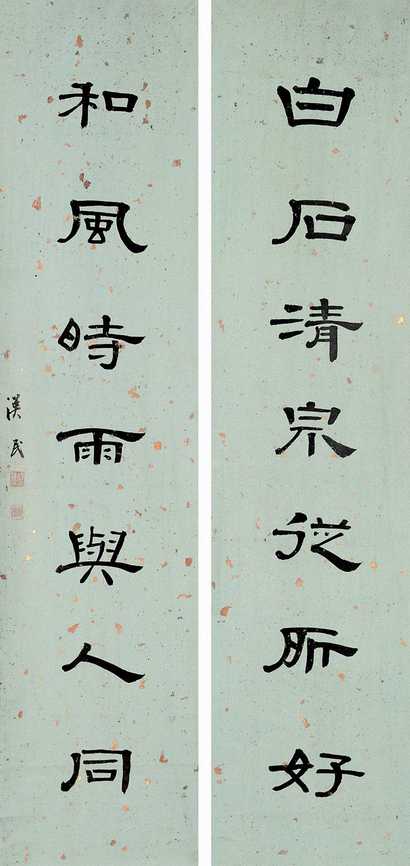 白石清宗從所好
和風時雨與人同
漢民